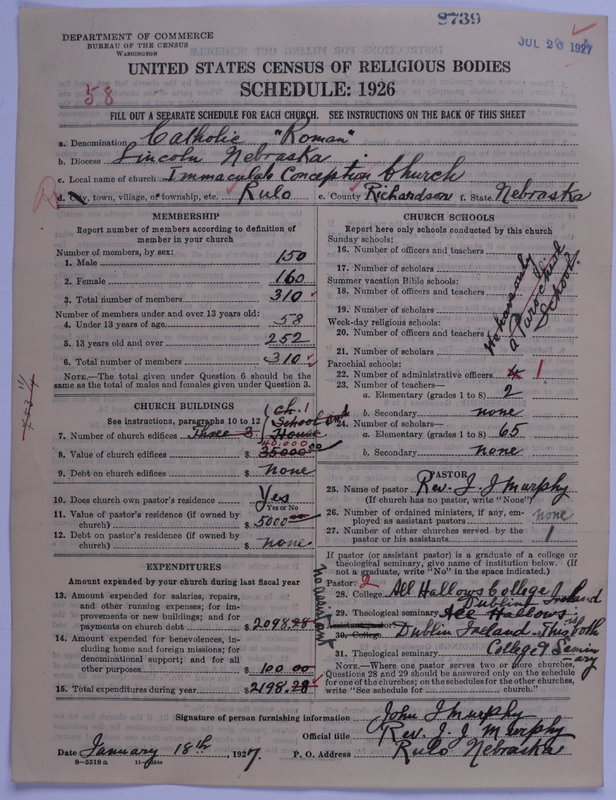 8739
DEPARTMENT OF COMMERCE
BUREAU OF THE CENSUS
WASHINGTON
JUL 20 1927
UNITED STATES CENSUS OF RELIGIOUS BODIES
SCHEDULE: 1926
58
FILL OUT A SEPARATE SCHEDULE FOR EACH CHURCH. SEE INSTRUCTIONS ON THE BACK OF THIS SHEET
a. Denomination Catholic "Roman"
b. Diocese Lincoln Nebraska
c. Local name of church Immaculate Conception Church
d. City, town, village, or township, etc. Rulo e. County Richardson f. State Nebraska
MEMBERSHIP
Report number of members according to definition of member in your church
Number of members, by sex:
1. Male 150
2. Female 160
3. Total number of members 310
Number of members under and over 13 years old:
4. Under 13 years of age 58
5. 13 years old and over 252
6. Total number of members 310
NOTE.—The total given under Question 6 should be the same as the total of males and females given under Question 3.
CHURCH BUILDINGS
See instructions, paragraphs 10 to 12
ch. 1
School and
House
7. Number of church edifices Three 3
40,000
8. Value of church edifices $ 35000 00
9. Debt on church edifices $ none
10. Does church own pastor's residence Yes
Yes or No
11. Value of pastor's residence (if owned by church) $ 5000
12. Debt on pastor's residence (if owned by church) $ none
EXPENDITURES
Amount expended by your church during last fiscal year
13. Amount expended for salaries, repairs, and other running expenses; for improvements or new buildings; and for payments on church debt $ 2098.28
14. Amount expended for benevolences, including home and foreign missions; for denominational support; and for all other purposes $ 100 00
15. Total expenditures during year $ 2198.28
CHURCH SCHOOLS
Report here only schools conducted by this church
Sunday schools:
16. Number of officers and teachers
17. Number of scholars
Summer vacation Bible schools:
18. Number of officers and teachers
19. Number of scholars
Week-day religious schools:
20. Number of officers and teachers
21. Number of scholars
We have only
a Parochial
School.
Parochial schools:
22. Number of administrative officers 4 1
23. Number of teachers—
a. Elementary (grades 1 to 8) 2
b. Secondary none
24. Number of scholars—
a. Elementary (grades 1 to 8) 65
b. Secondary none
PASTOR
25. Name of pastor Rev. J. J Murphy
(If church has no pastor, write "None")
26. Number of ordained ministers, if any, employed as assistant pastors none
27. Number of other churches served by the pastor or his assistants 1
If pastor (or assistant pastor) is a graduate of a college or theological seminary, give name of institution below. (If not a graduate, write "No" in the space indicated.)
Pastor: 2
28. College All Hallows College
Dublin Ireland
29. Theological seminary All Hallows
no assistant
30. College Dublin Ireland—This is both
31. Theological seminary College & Seminary
NOTE.—Where one pastor serves two or more churches, Questions 28 and 29 should be answered only on the schedule for one of the churches; on the schedules for the other churches, write "See schedule for church."
Signature of person furnishing information John J Murphy
Official title Rev. J. J Murphy
Date January 18th, 1927. P. O. Address Rulo Nebraska
8—5518 a